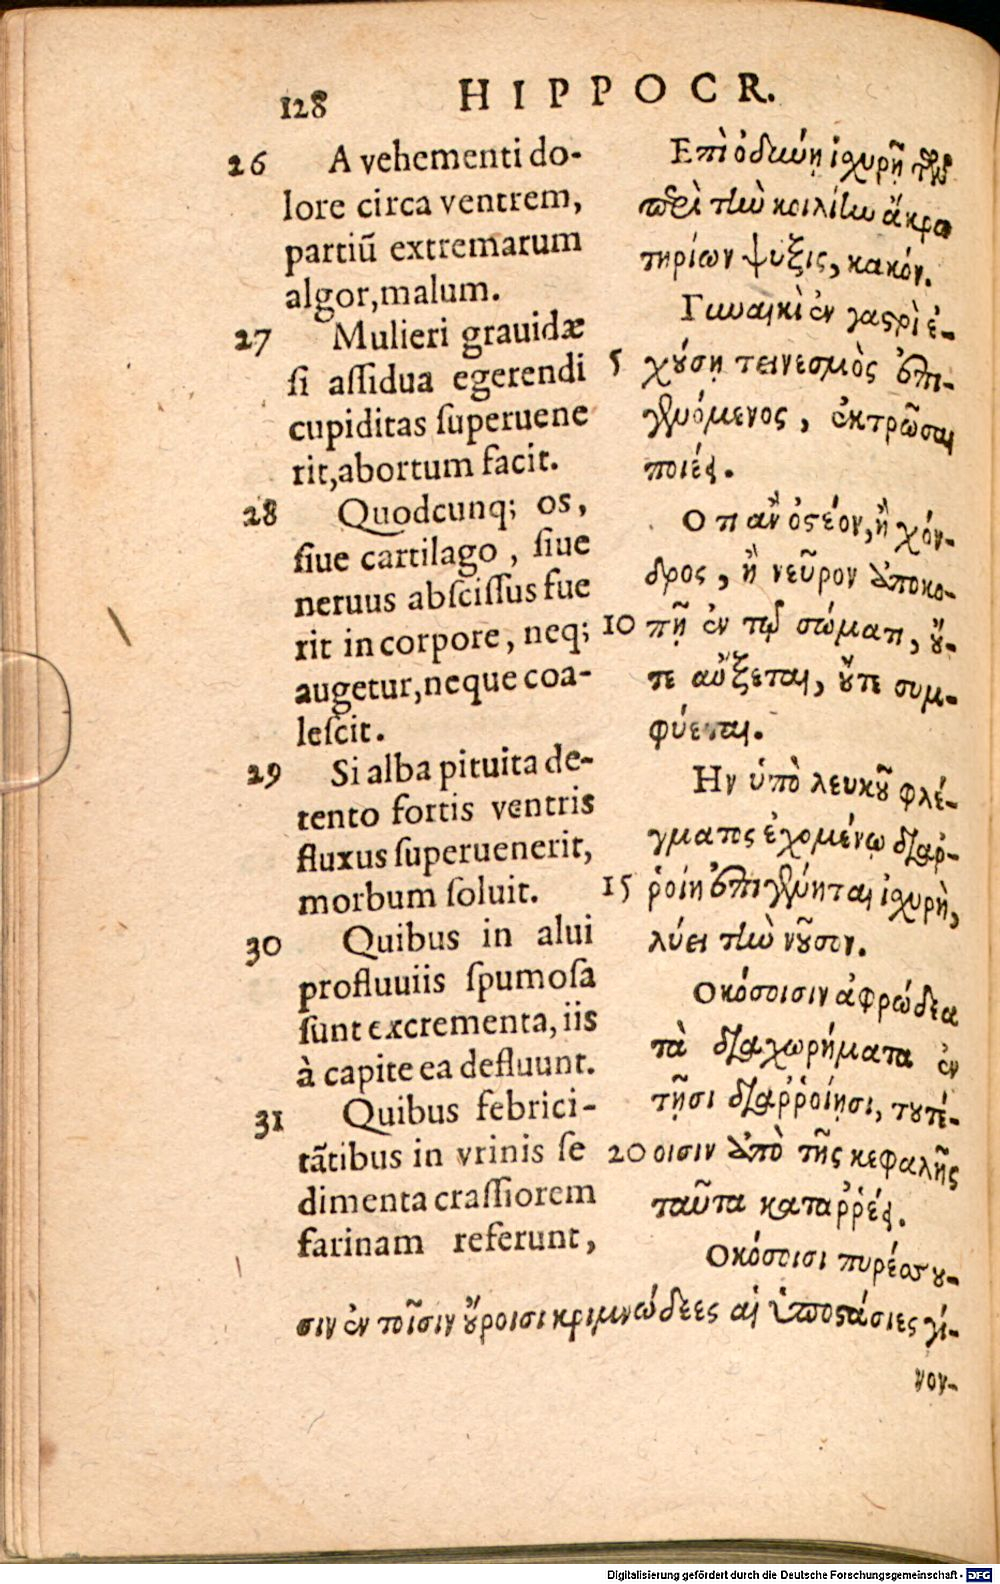 128 HIPPOCR.
26 A vehementi do-
lore circa ventrem,
partiũ extremarum
algor,malum.
27 Mulieri grauidæ
ſi aſſidua egerendi
cupiditas ſuperuene
rit,abortum facit.
28 Quodcunq; os,
ſiue cartilago , ſiue
neruus abſciſſus fue
rit in corpore, neq;
augetur,neque coa-
leſcit.
29 Si alba pituita de-
tento fortis ventris
fluxus ſuperuenerit,
morbum ſoluit.
30 Quibus in alui
profluuiis ſpumoſa
ſunt excrementa, iis
à capite ea defluunt.
31 Quibus febrici-
tãtibus in vrinis ſe
dimenta craſſiorem
farinam referunt,
Επὶ ὀδύνῃ ἰχυρῇ τῶν
περὶ τὴν κοιλίην ἄκρω
τηρίων ψυξις, κακόν.
Γυναικὶ ἐν γαστρὶ ἐ-
5 χούσῃ τεινεσμὸς ἐπι-
γενόμενος, ἐκτρῶσαι
ποιέει.
Οπαν ὀστέον, ἢ χόν-
δρος, ἢ νεῦρον ἀποκο-
10 πῇ ἐν τῷ σώματι, οὔ-
τε αὔξεται, οὔτε συμ-
φύεται.
Ην ὑπὸ λευκοῦ φλέ-
γματος ἐχομένῳ διαῤ-
15 ῥοίη ἐπιγένηται ἰχυρὴ,
λύει τὴν νοῦσον.
Οκόσοισιν ἀφρώδεα
τὰ διαχωρήματα ἐν
τῇσι διαῤῥοίῃσι, τουτέ-
20 οισιν ἀπὸ τῆς κεφαλῆς
ταῦτα καταῤῥέει.
Οκόσοισι πυρέσσου-
σιν ἐν τοῖσιν οὔροισι κριμνώδεες αἱ ὑποστάσιες γί-
νον-
Digitalisierung gefördert durch die Deutsche Forschungsgemeinschaft - DFG